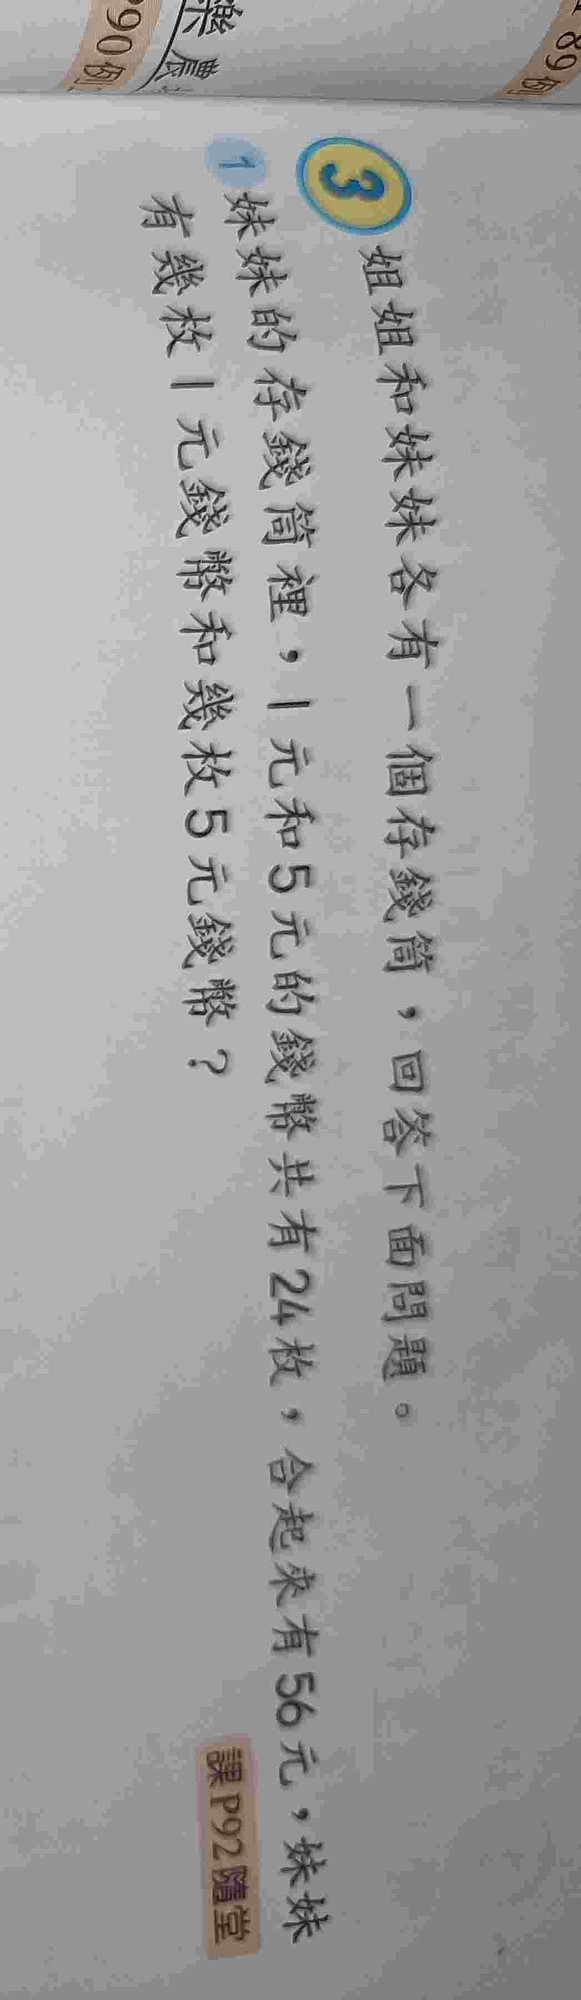 89例
樂
90例
3
姐姐和妹妹各有一個存錢筒，回答下面問題。
1 妹妹的存錢筒裡，1元和5元的錢幣共有24枚，合起來有56元，妹妹
有幾枚1元錢幣和幾枚5元錢幣？
課P92隨堂